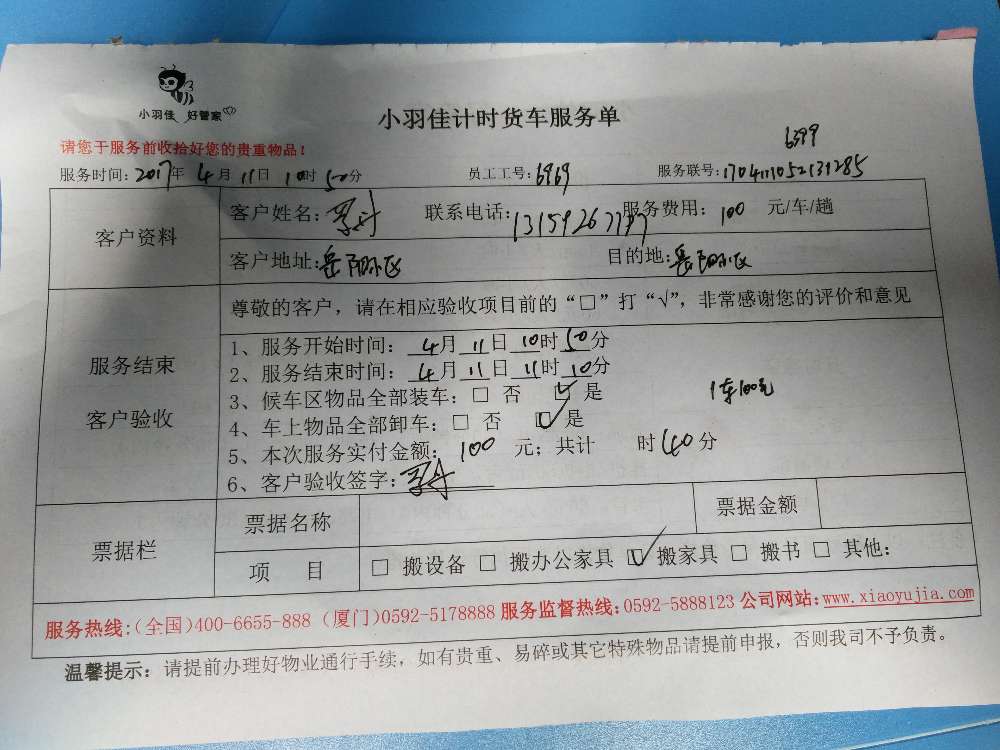 小羽佳 好管家
小羽佳计时货车服务单
请您于服务前收拾好您的贵重物品！
6399
服务时间：2017年 4月 11日 10时 50分 员工工号：6969 服务联号：1704111052139285
客户资料
客户姓名： 联系电话： 服务费用：100 元/车/趟
客户地址：岳阳小区 目的地：岳阳小区
服务结束
客户验收
尊敬的客户，请在相应验收项目前的“□”打“√”，非常感谢您的评价和意见
1、服务开始时间：4月 11日 10时 50分
2、服务结束时间：4月 11日 11时 10分
3、候车区物品全部装车：□ 否 ☑ 是
1车100元
4、车上物品全部卸车：□ 否 ☑ 是
5、本次服务实付金额：100 元；共计 时 40分
6、客户验收签字：
票据栏
票据名称 票据金额
项 目 □ 搬设备 □ 搬办公家具 ☑ 搬家具 □ 搬书 □ 其他：
服务热线：（全国）400-6655-888（厦门）0592-5178888 服务监督热线：0592-5888123 公司网站：www.xiaoyujia.com
温馨提示：请提前办理好物业通行手续，如有贵重、易碎或其它特殊物品请提前申报，否则我司不予负责。